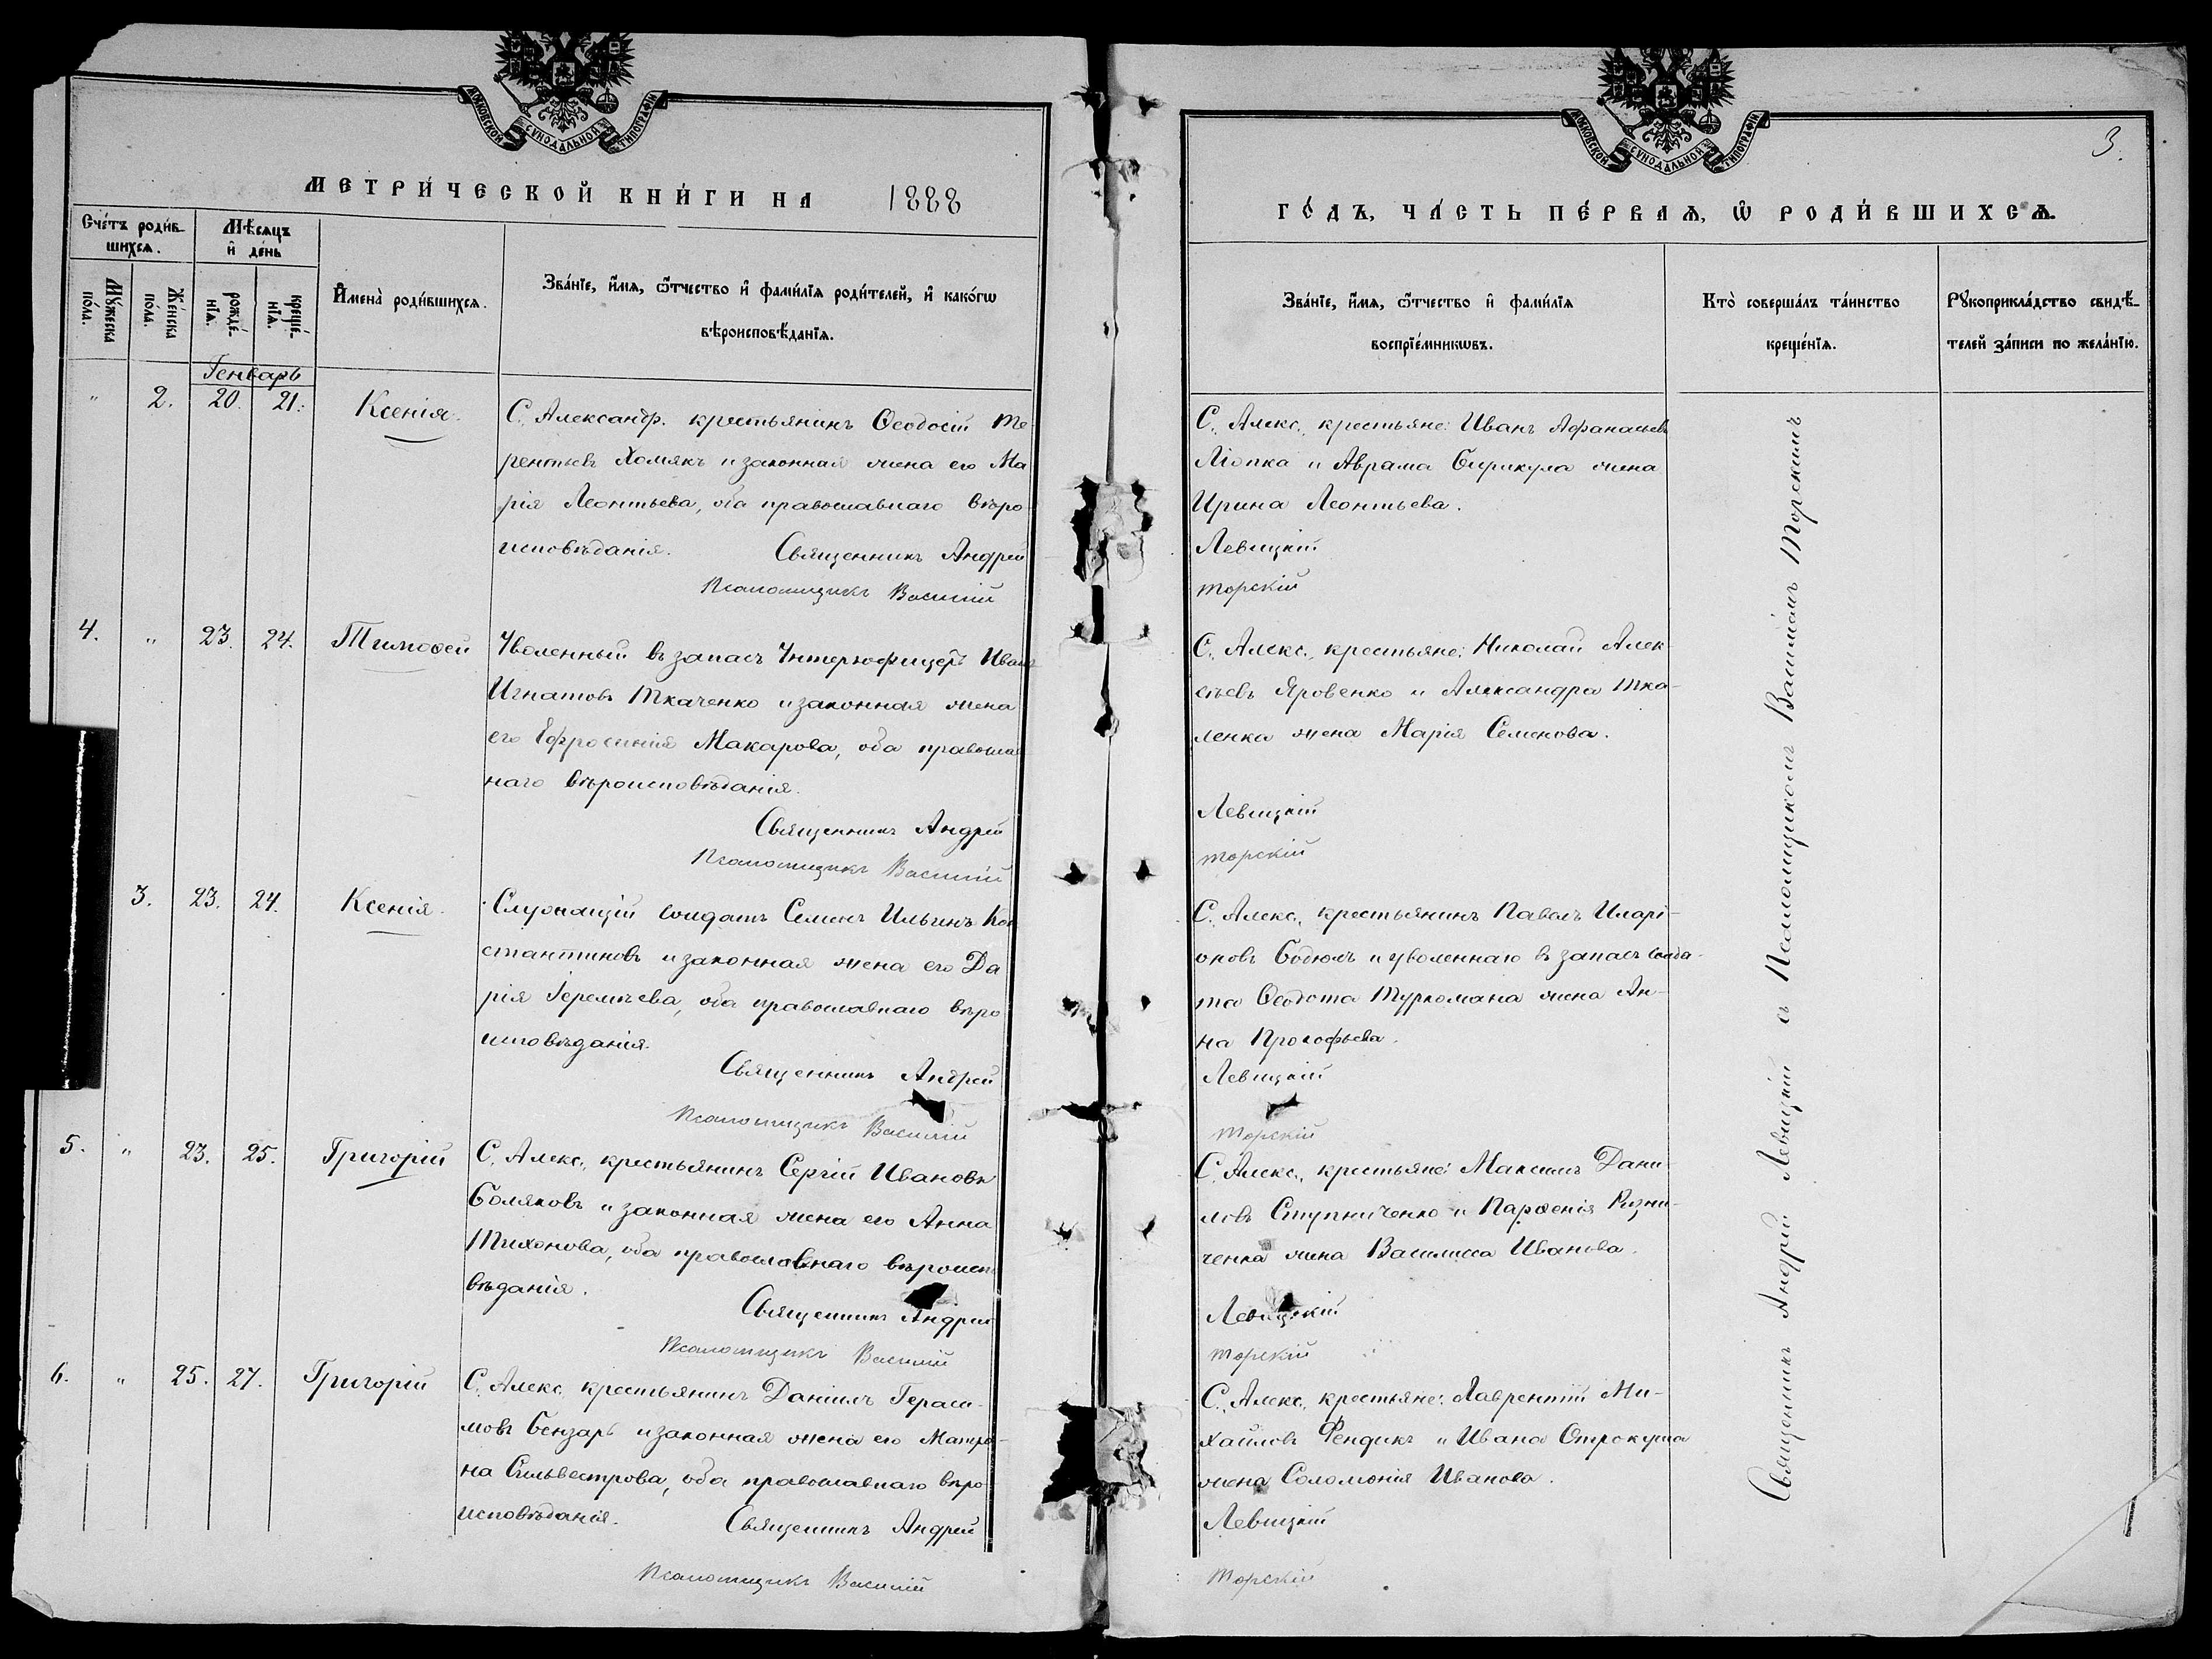 МОСКОВСКОЙ СѴНОДАЛЬНОЙ ТИПОГРАФІИ
МЕТРИ́ЧЕСКОЙ КНИ́ГИ НА 1888
Сче́тъ роди́в-
шихсѧ.
Мѣ́сѧцъ
и҆ де́нь
Мꙋ́жеска
по́ла.
Же́нска
по́ла.
рожде́-
нїѧ.
креще́-
нїѧ.
И҆мена̀ роди́вшихсѧ.
Зва́нїе, и҆́мѧ, ѻ҆́тчество и҆ фами́лїѧ роди́телей, и҆ како́гѡ
вѣроисповѣ́данїѧ.
Генварь
" 2. 20. 21. Ксенія.
С. Александр. крестьянинъ Ѳеодосій Те
рентьевъ Хомякъ и законная жена его Ма
рія Леонтьева, оба православнаго вѣро
исповѣданія. Священникъ Андрей
Псаломщикъ Василій
4. " 23. 24. Тимоѳей
Уволенный въ запасъ Унтеръофицеръ Иванъ
Игнатовъ Ткаченко и законная жена
его Ефросинія Макарова, оба православ
наго вѣроисповѣданія.
Священникъ Андрей
Псаломщикъ Василій
3. 23. 24. Ксенія.
Служащій солдатъ Семенъ Ильинъ Кон
стантиновъ и законная жена его Да
рія Іеремѣева, оба православнаго вѣро
исповѣданія.
Священникъ Андрей
Псаломщикъ Василій
5. " 23. 25. Григорій
С. Алекс., крестьянинъ Сергій Ивановъ
Боляковъ и законная жена его Анна
Тихонова, оба православнаго вѣроиспо
вѣданія.
Священникъ Андрей
Псаломщикъ Василій
6. " 25. 27. Григорій
С. Алекс. крестьянинъ Даніилъ Гераси-
мовъ Бензарь и законная жена его Матро-
на Сильвестрова, оба православнаго вѣро
исповѣданія. Священникъ Андрей
Псаломщикъ Василій
МОСКОВСКОЙ СѴНОДАЛЬНОЙ ТИПОГРАФІИ
3.
ГО́ДЪ, ЧА́СТЬ ПЕ́РВАѦ, Ѡ҆ РОДИ́ВШИХСѦ.
Зва́нїе, и҆́мѧ, ѻ҆́тчество и҆ фами́лїѧ
воспрїе́мникѡвъ.
Кто̀ соверша́лъ та́инство
креще́нїѧ.
Рꙋкоприкла́дство свидѣ́-
телей за́писи по жела́нїю.
С. Алекс., крестьяне: Иванъ Афанасьевъ
Ліопка и Аврама Сирикула жена
Ирина Леонтьева.
Левицкій
Торскій
С. Алекс., крестьяне: Николай Алек
сѣевъ Яровенко и Александра Тка-
ленка жена Марія Семенова.
Левицкій
Торскій
С. Алекс., крестьянинъ Павелъ Иларі-
оновъ Бодюлъ и уволеннаго въ запасъ солда-
та Ѳеодота Туркомана жена Ан-
на Прокофьева.
Левицкій
Торскій
С. Алекс., крестьяне: Максимъ Дани
ловъ Ступниченко и Парѳенія Ризни-
ченка жена Василисса Иванова.
Левицкій
Торскій
С. Алекс., крестьяне: Лаврентій Ми-
хайловъ Фендикъ и Ивана Отрокуша
жена Соломонія Иванова.
Левицкій
Торскій
Священникъ Андрей Левицкій съ Псаломщикомъ Василіемъ Торскимъ